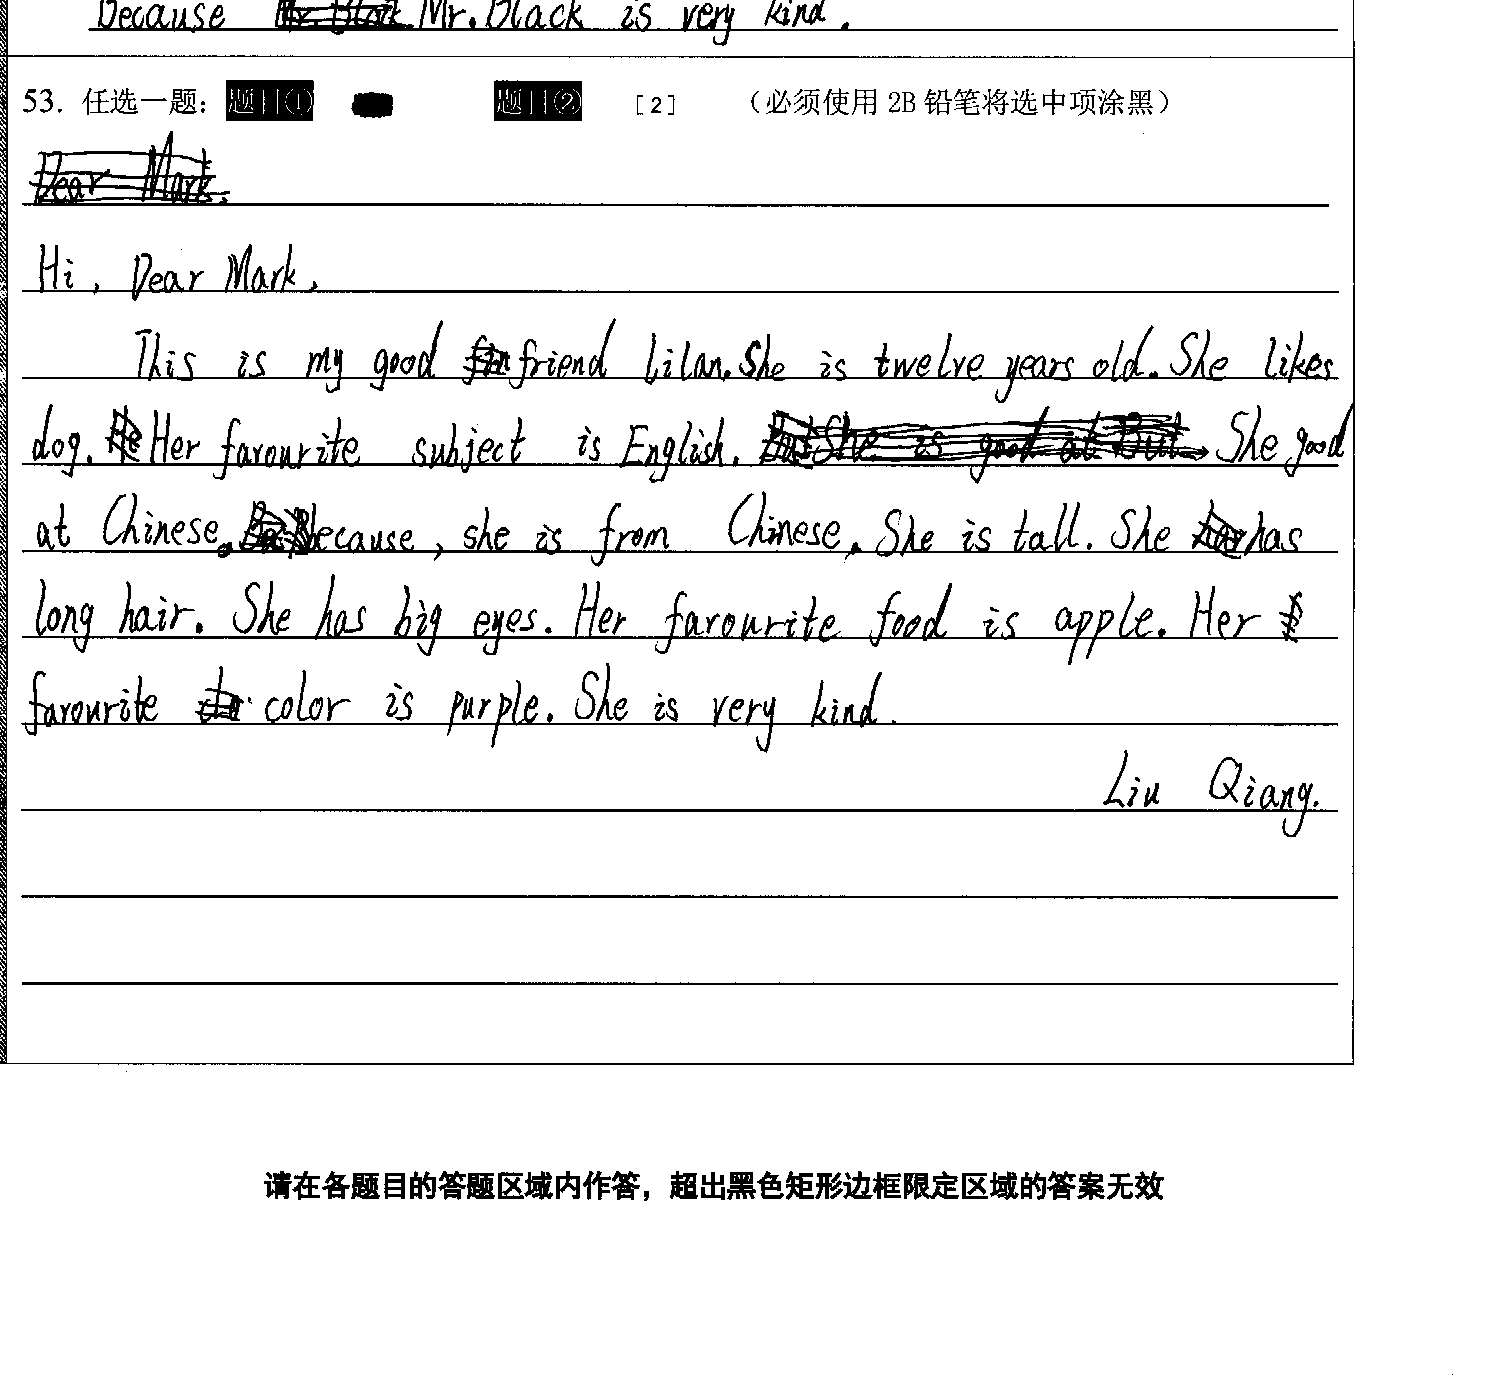 Because Mr. Black is very kind.
53. 任选一题: 题目① 题目② [2] （必须使用 2B 铅笔将选中项涂黑）
Dear Mark.
Hi, Dear Mark,
This is my good friend Lilan. She is twelve years old. She likes
dog. He Her favourite subject is English. But She is good at But She good
at Chinese. Because, she is from Chinese. She is tall. She has
long hair. She has big eyes. Her favourite food is apple. Her
favourite color is purple. She is very kind.
Liu Qiang.
请在各题目的答题区域内作答，超出黑色矩形边框限定区域的答案无效